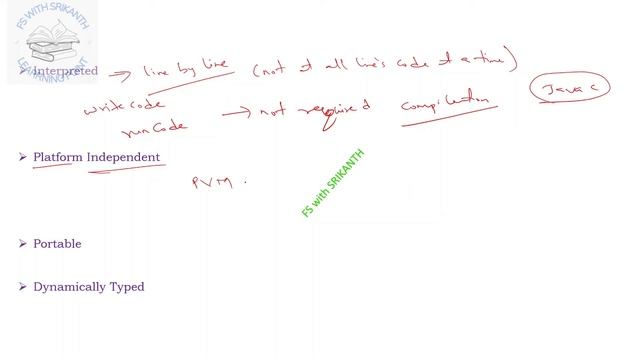 FS WITH SRIKANTH
LEARNING POINT
Interpreted → line by line (not at all line's code at a time)
write code
run code → not required compilation Javac
Platform Independent
PVM.
FS with SRIKANTH
Portable
Dynamically Typed